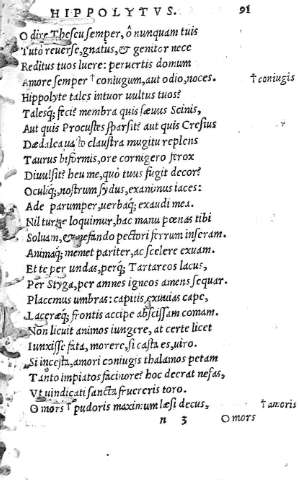 HIPPOLYTVS. 91
O dire Theseu semper, ô nunquam tuis
Tutò reuerse, gnatus, & genitor nece
Reditus tuos luere: peruertis domum
Amore semper † coniugum, aut odio, noces. † coniugis
Hippolyte tales intuor uultus tuos?
Talesq́; feci? membra quis sæuus Scinis,
Aut quis Procustes sparsit? aut quis Cresius
Dædalea claustra mugitu replens
Taurus biformis, ore cornigero ferox
Diuulsit? heu me, quò tuus fugit decor?
Oculiq́; nostrum sydus, exanimus iaces:
Ade parumper, uerbaq́; exaudi mea.
Nil turpe loquimur, hac manu pœnas tibi
Soluam, & nefando pectori ferrum inseram.
Animaq́; memet pariter, ac scelere exuam.
Et te per undas, perq́; Tartareos lacus,
Per Styga, per amnes igneos amens sequar.
Placemus umbras: capitis exuuias cape,
Laceræq́; frontis accipe abscissam comam.
Non licuit animos iungere, at certe licet
Iunxisse fata, morere, si casta es, uiro.
Si incesta, amori coniugis thalamos petam
Tanto impiatos facinore? hoc decrat nefas,
Vt uindicati sancta fruereris toro.
O mors † pudoris maximum læsi decus, † amoris
n 3 O mors